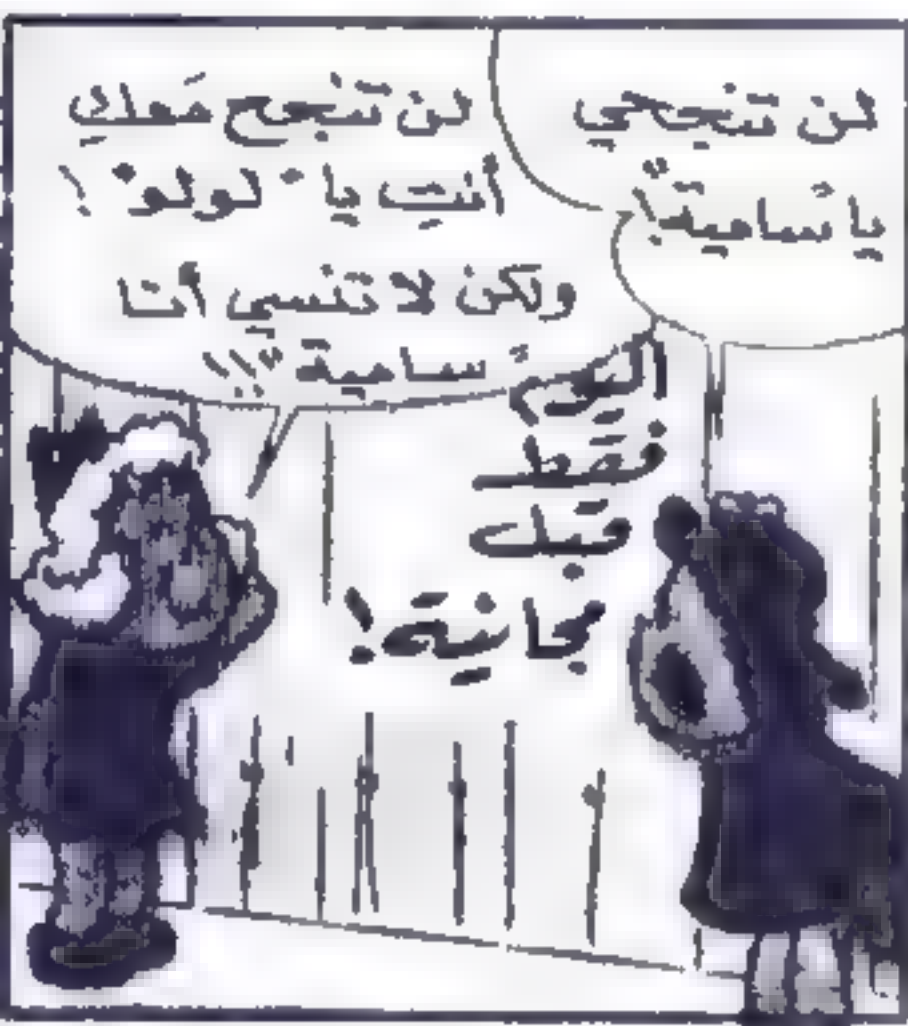 لن تنجحي
يا "سامية"!
لن تنجح مَعكِ
أنتِ يا "لولو" !
ولكن لا تنسي أنا
"سامية" !!!
اليوم
فقط
قبل
مجانية!